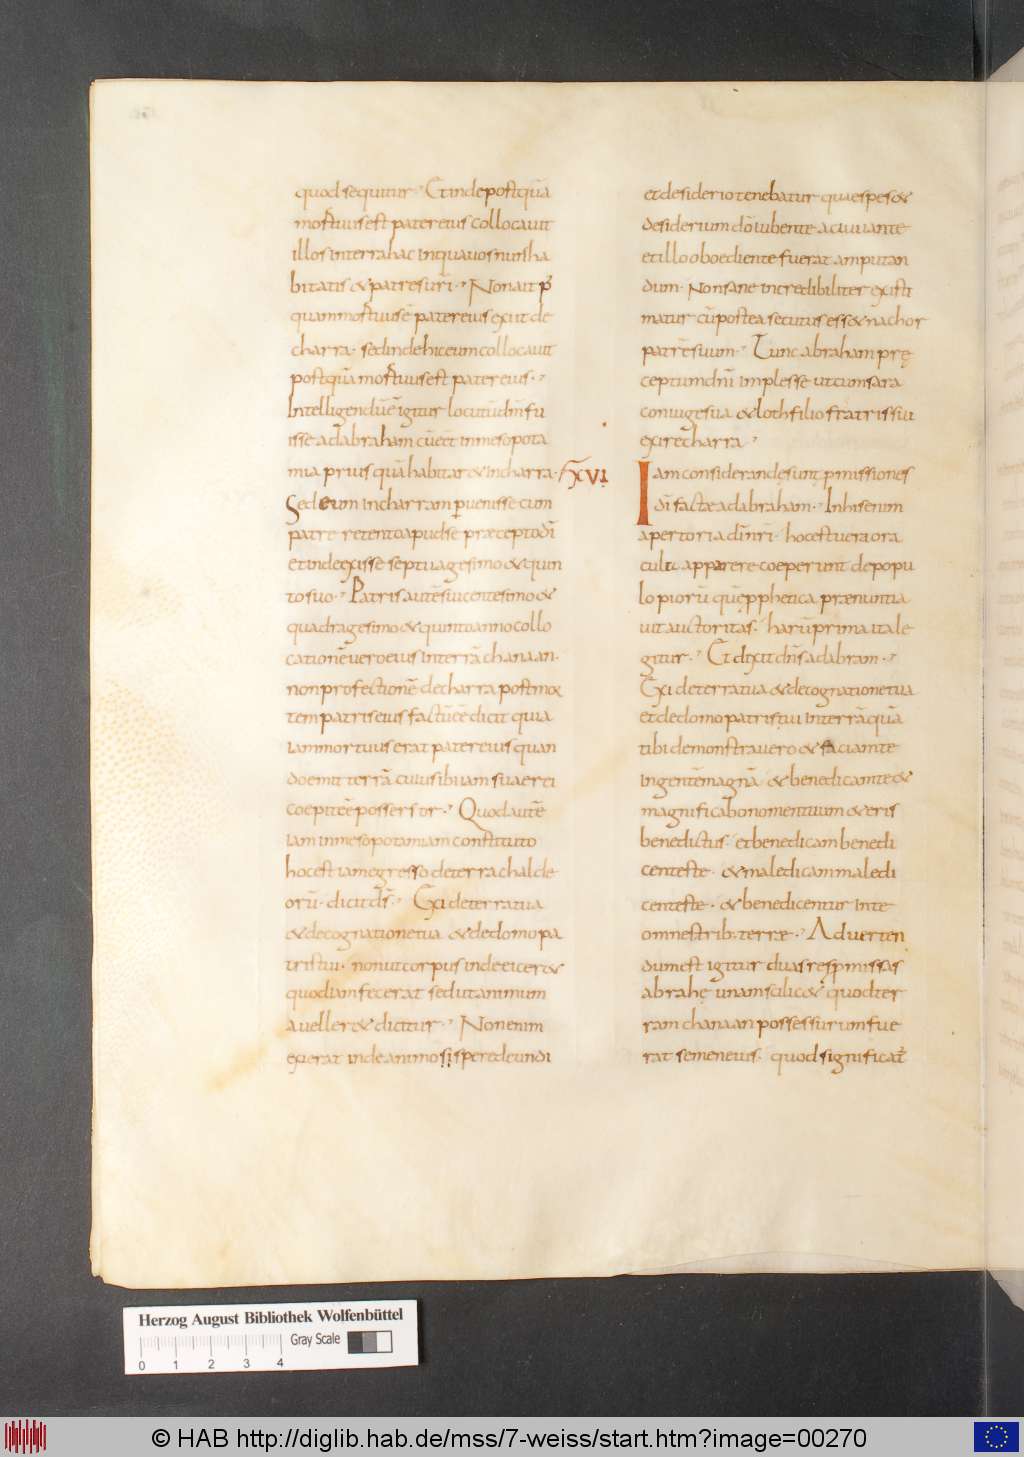 quod sequitur. Et inde postquā
mortuus est pater eius collocauit
illos in terra hac in qua uos nunc ha
bitatis & patres uri. Non ait p̄
quam mortuus ē pater eius exiit de
charra. sed inde hic eum collocauit
postquā mortuus est pater eius.
Intelligendū ē igitur locutū dn̄m fu
isse ad abraham cū eēt in mesopota
mia prius quā habitar& in charra.
Sed eum in charram ꝑuenisse cum
patre retento apud se præcepto dī
et inde exisse septuagesimo & quin
to suo. Patris autē sui centesimo &
quadragesimo & quinto anno collo
cationē uero eius in terrā chanaan.
non profectionē de charra post mor
tem patris eius factū eē dicit quia
iam mortuus erat pater eius quan
do emit terrā cuius ibi iam suae rei
coepit eē possersor. Quod autē
iam in mesopotamiam constituto
hoc est iam egresso de terra chalde
orū. dicit ds̄. Exi de terra tua
& de cognatione tua & de domo pa
tris tui. non ut corpus inde eicer&
quod iam fecerat sed ut animum
aueller& dicitur. Non enim
exierat inde animo si spe redeundi
XVI
et desiderio tenebatur quae spes &
desiderium dō iubente ac iuuante
et illo oboediente fuerat amputan
dum. Non sane incredibiliter existi
matur cū postea secutus ess& nachor
patrē suum. Tunc abraham prę
ceptum dn̄i implesse ut cum sara
coniuge sua & loth filio fratris sui
exiret charra.
Iam considerandę sunt ꝓmissiones
dī factæ ad abraham. In his enim
apertoria dī nr̄i. hoc est uera ora
cula apparere coeperunt de popu
lo piorū quē ꝓphetica prænuntia
uit auctoritas. harū prima ita le
gitur. Et dixit dn̄s ad abram.
Exi de terra tua & de cognatione tua
et de domo patris tui in terrā quā
tibi demonstrauero & faciam te
in gentē magnā & benedicam te &
magnificabo nomen tuum & eris
benedictus. et benedicam benedi
centes te. & maledicam maledi
centes te. & benedicentur in te
omnes trib. terræ. Aduerten
dum est igitur duas res ꝓmissas
abrahę unam scilic& quod ter
ram chanaan possessurum fue
rat semen eius. quod significat̄
Herzog August Bibliothek Wolfenbüttel
Gray Scale
0 1 2 3 4
© HAB http://diglib.hab.de/mss/7-weiss/start.htm?image=00270